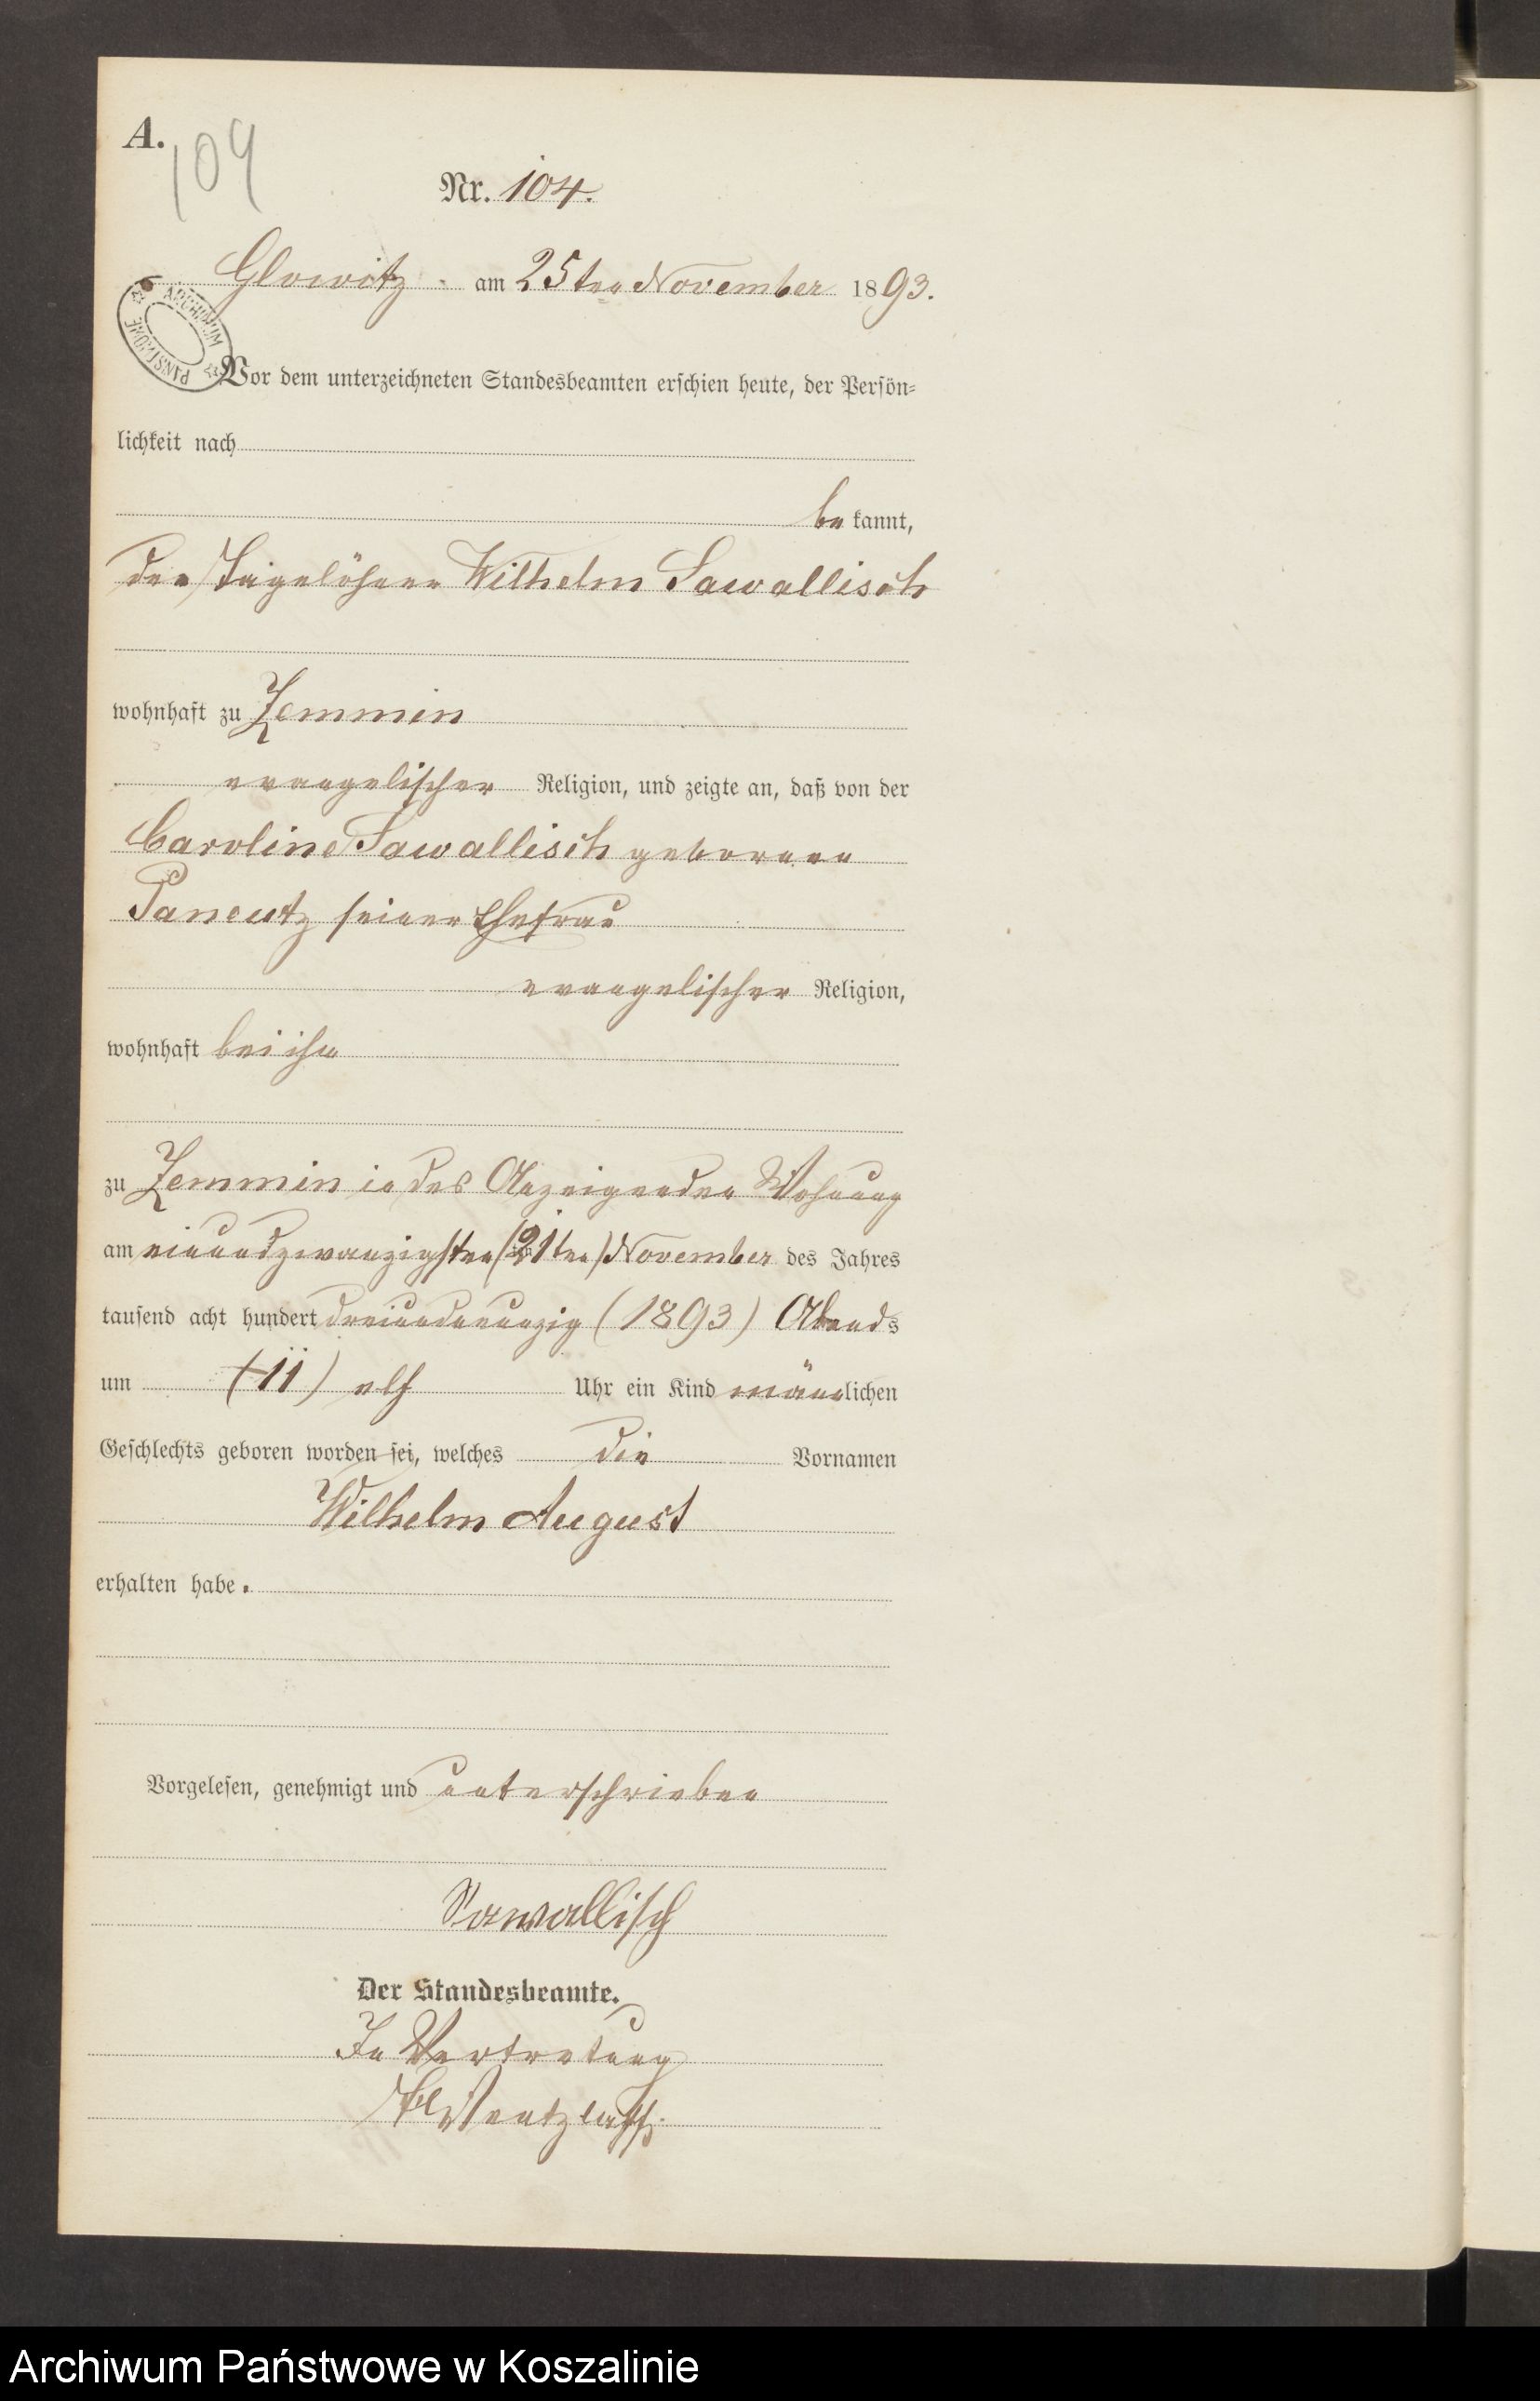 A.
104
Nr. 104.
Glowitz am 25ten November 1893.
ARCHIWUM PAŃSTWOWE
Vor dem unterzeichneten Standesbeamten erschien heute, der Persön-
lichkeit nach
be kannt,
der Tagelöhner Wilhelm Sawallisch
wohnhaft zu Zemmin
evangelischer Religion, und zeigte an, daß von der
Caroline Sawallisch geborenen
seiner Ehefrau
evangelischer Religion,
wohnhaft bei ihm
zu Zemmin in des Anzeigenden Wohnung
am einundzwanzigsten (21ten) November des Jahres
tausend acht hundert dreiundneunzig (1893) Abends
um (11) elf Uhr ein Kind männlichen
Geschlechts geboren worden sei, welches die Vornamen
Wilhelm August
erhalten habe.
Vorgelesen, genehmigt und unterschrieben
Sawallisch
Der Standesbeamte.
In Vertretung
Wentzlaff.
Archiwum Państwowe w Koszalinie